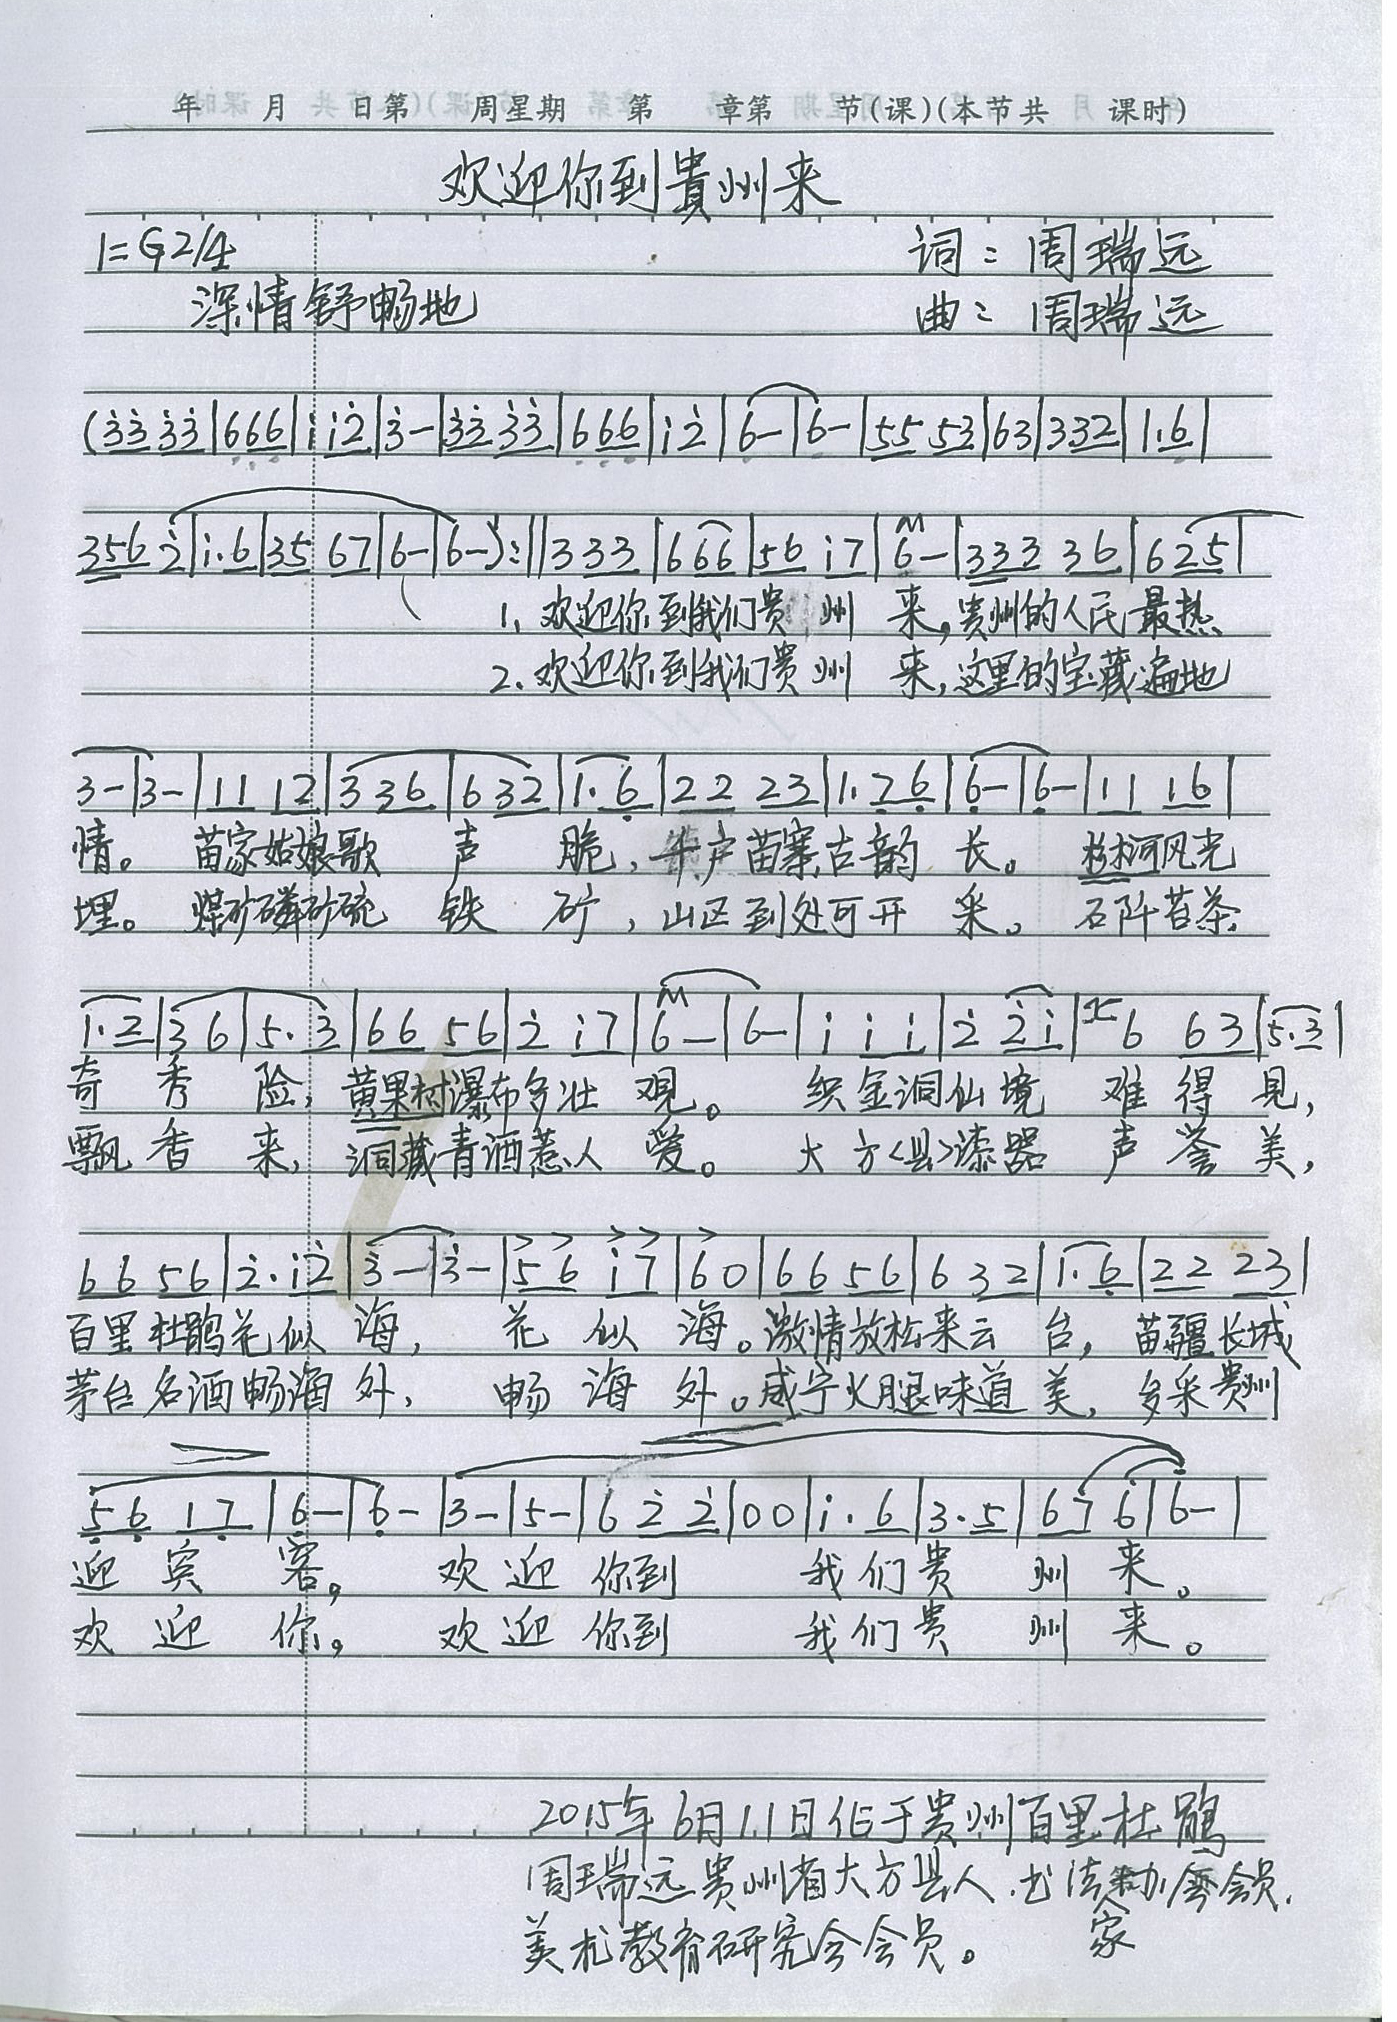 年 月 日第 周星期 第 章第 节(课)(本节共 课时)
欢迎你到貴州来
1=G 2/4 词：周瑞远
深情舒畅地 曲：周瑞远
(3̇3̇ 3̇3̇|666|i i2̇|3̇-|3̇3̇ 3̇3̇|666|i 2̇|6-|6-|55 53|63|332|1.6|
356 2̇|i.6|35 67|6-|6-):||333|666|56 i7|6-|333 36|625|
1、欢迎你到我们贵 州 来,贵州的人民最热
2、欢迎你到我们贵 州 来,这里的宝藏遍地
3-|3-|11 12|336|632|1.6|22 23|1.26|6-|6-|11 16|
情。 苗家姑娘歌 声 脆, 户苗寨古韵 长。 河风光
埋。 煤矿磷矿硫 铁 矿, 山区到处可开 采。 石阡苔茶
1.2|36|5.3|66 56|2̇ i7|6-|6-|i i i|2̇ 2̇i|6 63|5.3|
奇 秀 险, 黄果树瀑布多壮 观。 织金洞仙境 难 得 见,
飘 香 来, 洞藏青酒惹人 爱。 大方<县>漆器 声 誉 美,
66 56|2̇.i2̇|3̇-|3̇-|56 i7|60|66 56|632|1.6|22 23|
百里杜鹃花似 海, 花 似 海。激情放松来云 台, 苗疆长城
茅台名酒畅酒 外, 畅 海 外。威宁火腿味道 美, 多采贵州
56 17|6-|6-|3-|5-|6 2̇ 2̇|00|i.6|3.5|67 6|6-|
迎 宾 客。 欢 迎 你到 我们贵 州 来。
欢 迎 你。 欢 迎 你到 我们贵 州 来。
2015年6月11日作于贵州百里杜鹃
周瑞远贵州省大方县人.书法家协会会员.
美术教育研究会会员。